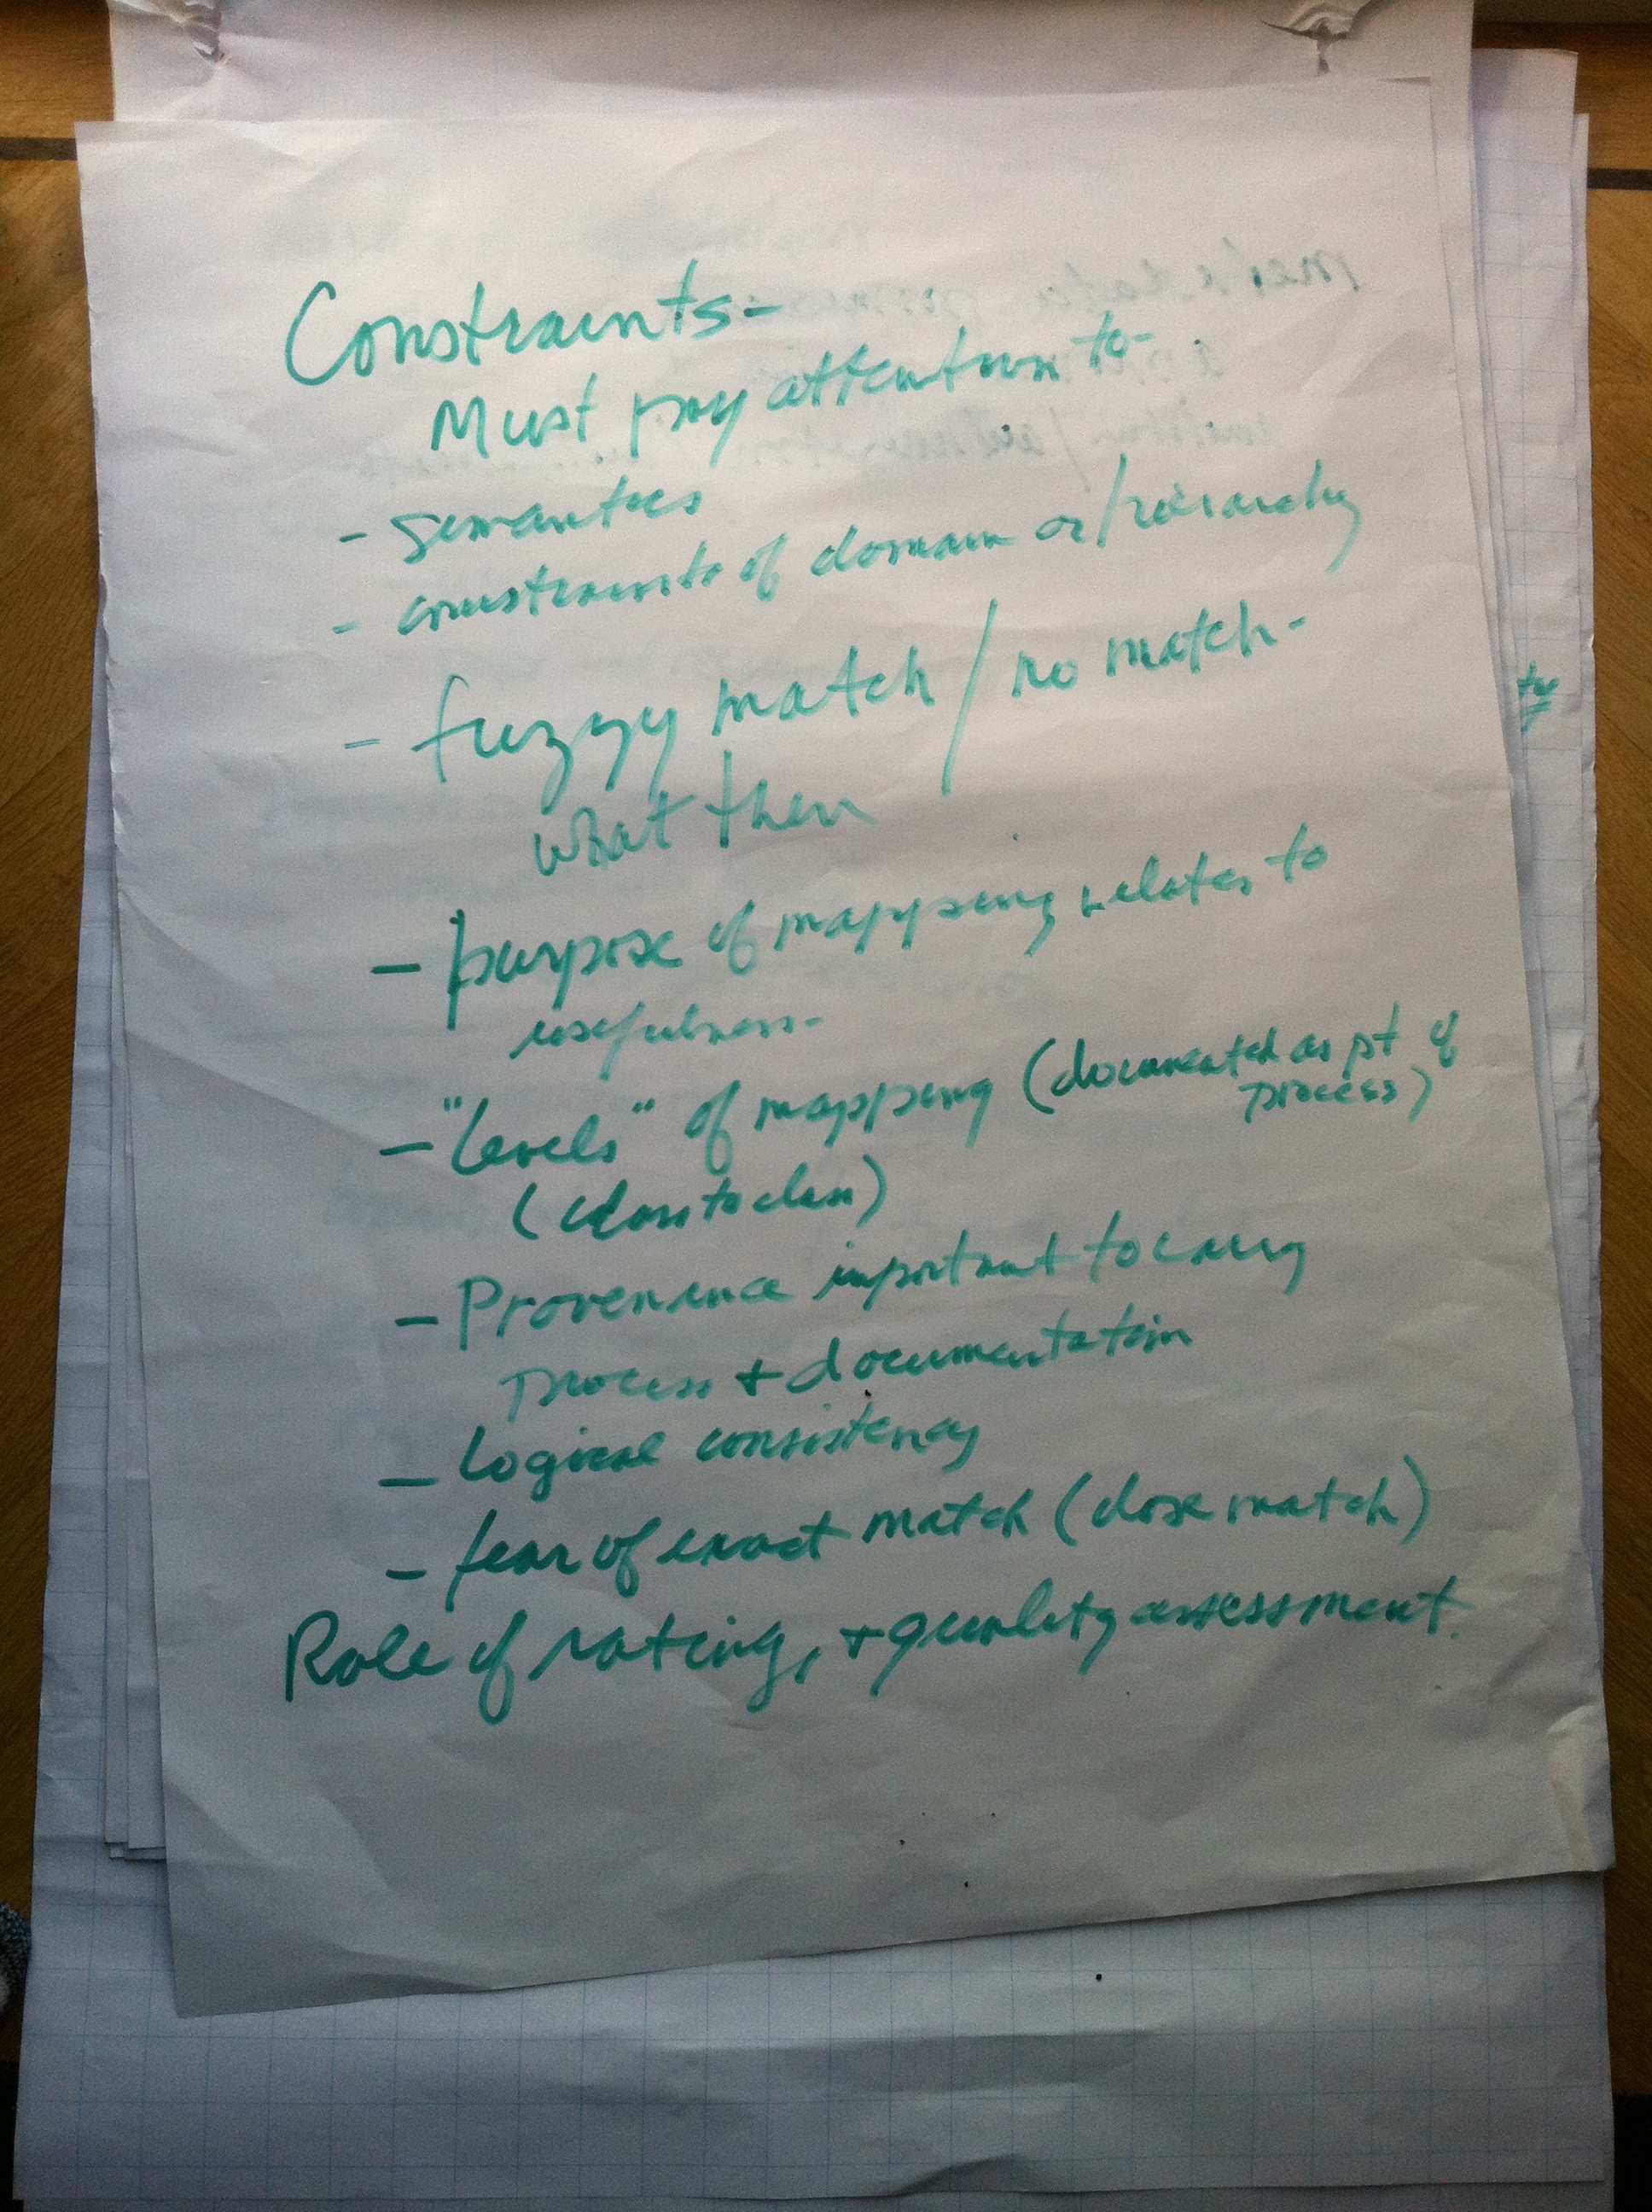 Constraints-
Must pay attention to-
- semantics
- constraints of domain or/hierarchy
- fuzzy match / no match-
what then
- purpose of mapping relates to
usefulness-
- "levels" of mapping (documented as pt of
process)
(class to class)
- Provenence important to carry
process + documentation
- Logical consistency
- fear of exact match (close match)
Role of rating, + quality assessment.